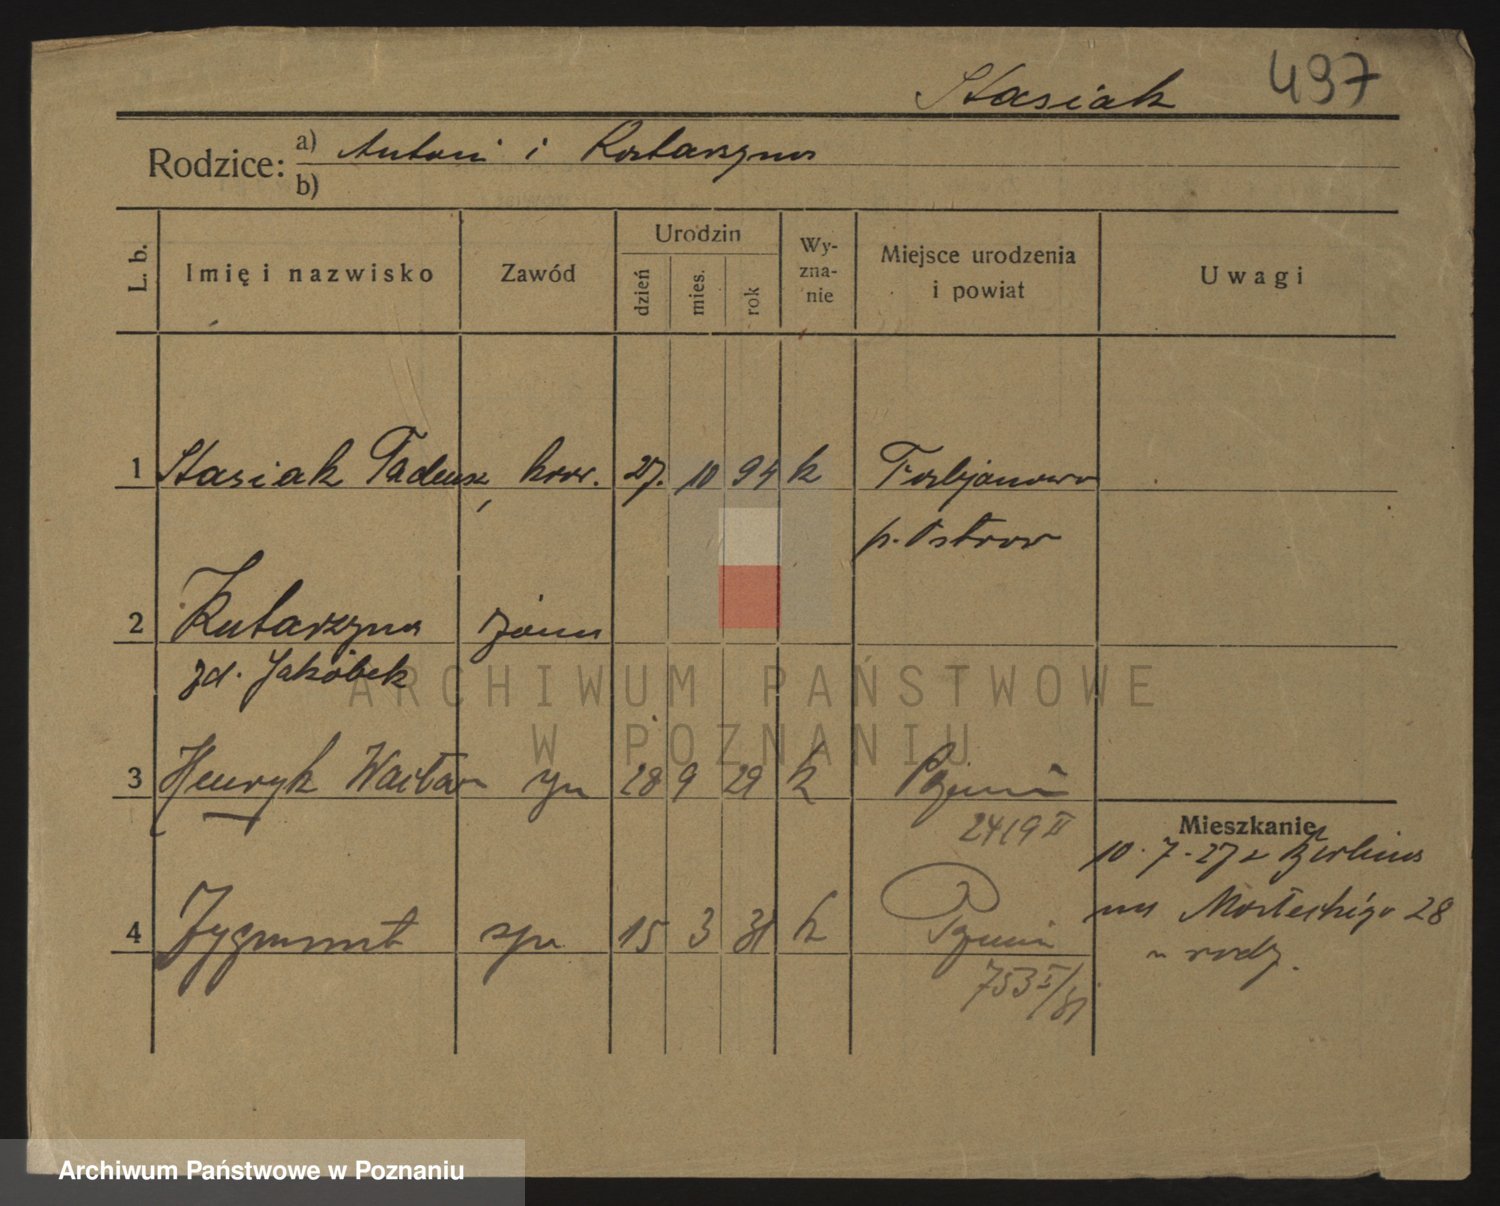 Stasiak 497
Rodzice: a) Antoni i Katarzyna
b)
L. b. Imię i nazwisko Zawód Urodzin dzień mies. rok Wyznanie Miejsce urodzenia i powiat Uwagi
1 Stasiak Tadeusz, kraw. 27. 10 94 k
p. Ostrow
2 Katarzyna żona
zd. Jakóbek
3 Henryk Wacław syn 28 9 29 k Poznań
2419 II
Mieszkanie
10.7.27 z Berlina
4 Zygmunt syn 15 3 31 k Poznań
na 28
u rodz.
753 I/31
ARCHIWUM PAŃSTWOWE
W POZNANIU
Archiwum Państwowe w Poznaniu